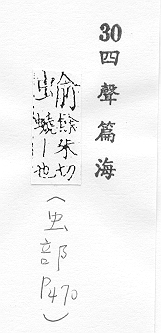 30四聲篇海
俞餘朱切
虫蟯丨也
(虫部
P470)